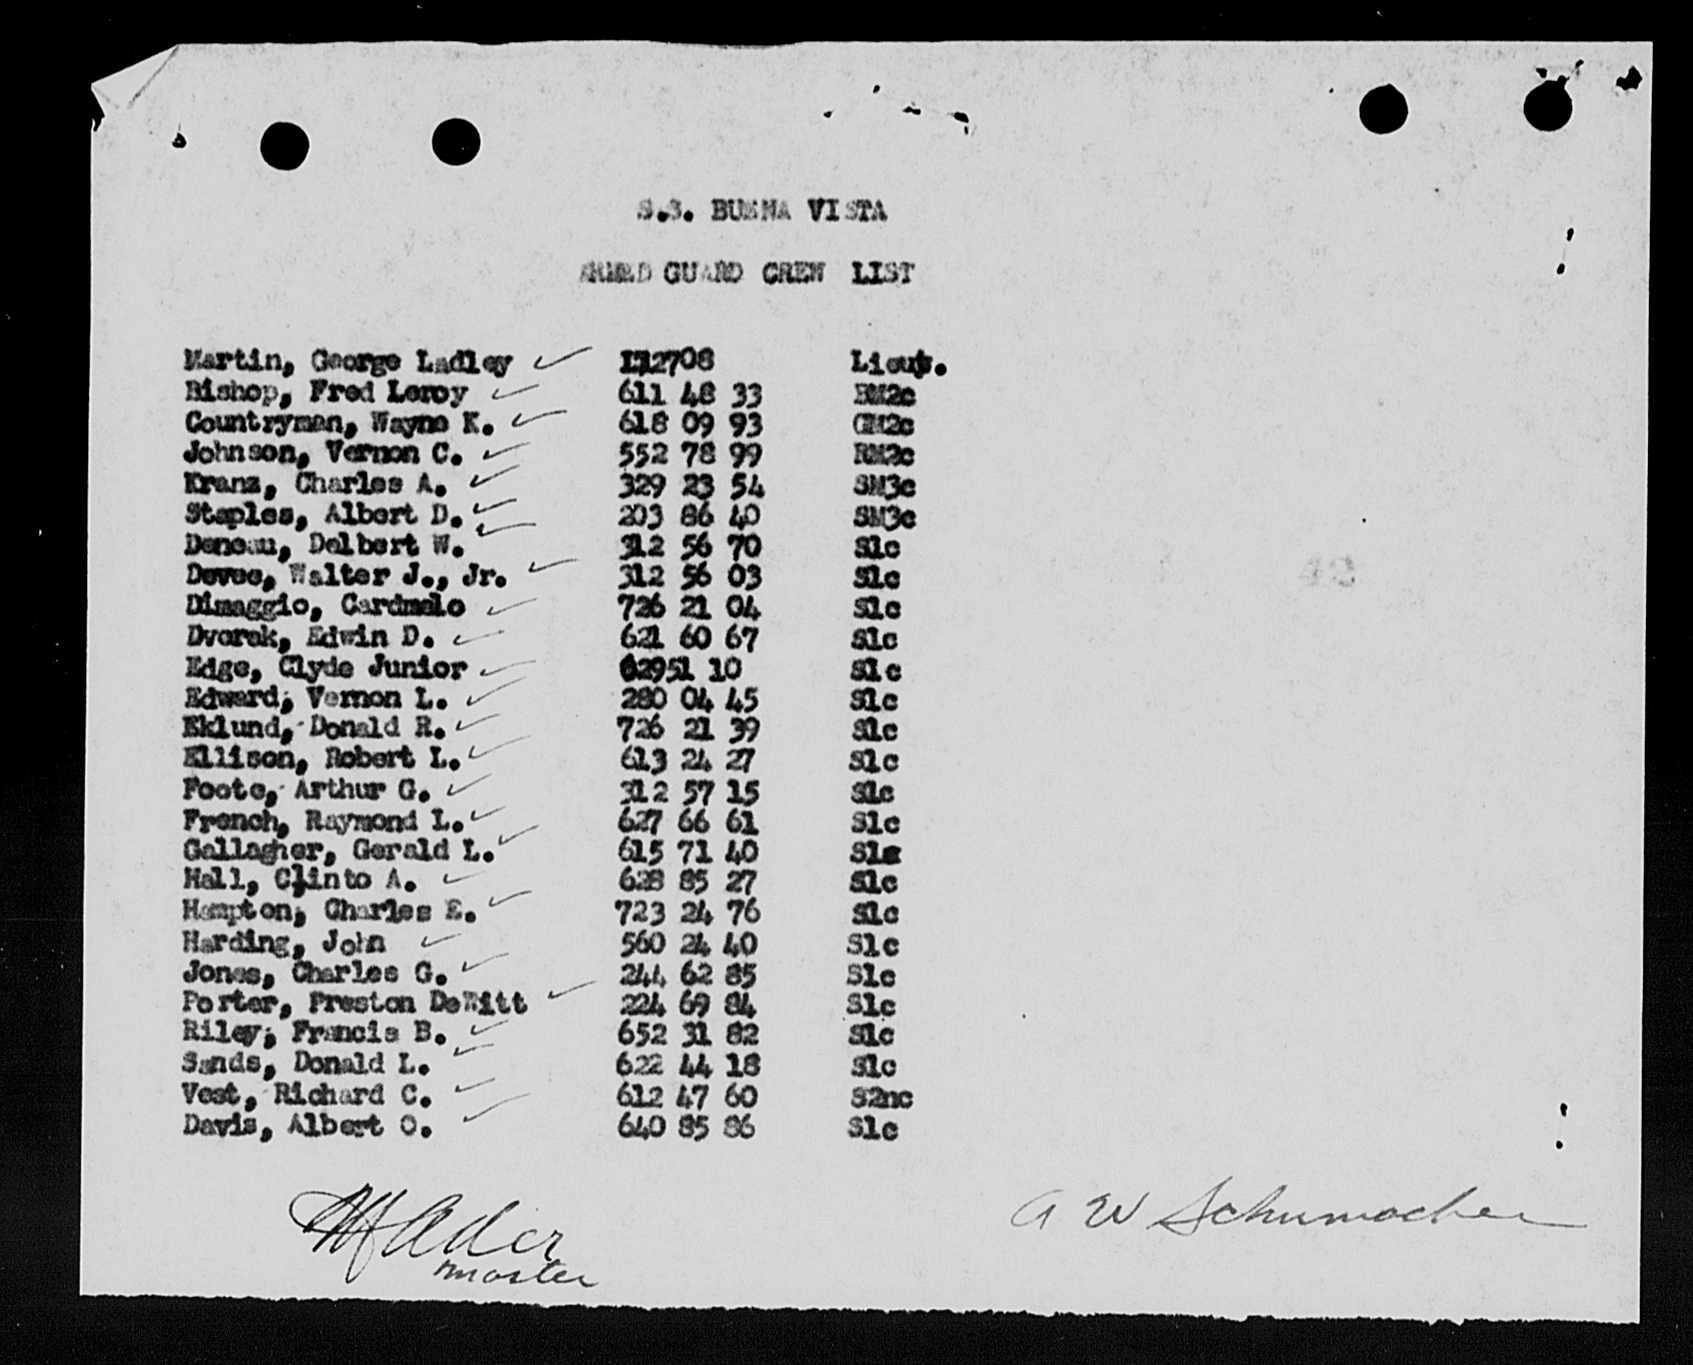 S.S. BUENA VISTA
ARMED GUARD CREW LIST
Martin, George Ladley 112708 Lieut.
Bishop, Fred Leroy 611 48 33 BM2c
Countryman, Wayne K. 618 09 93 GM2c
Johnson, Vernon C. 552 78 99 RM2c
Kranz, Charles A. 329 23 54 SM3c
Staples, Albert D. 203 86 40 SM3c
Deneau, Delbert W. 312 56 70 S1c
Devee, Walter J., Jr. 312 56 03 S1c
Dimaggio, Cardmelo 726 21 04 S1c
Dvorak, Edwin D. 621 60 67 S1c
Edge, Clyde Junior 62951 10 S1c
Edward, Vernon L. 280 04 45 S1c
Eklund, Donald R. 726 21 39 S1c
Ellison, Robert L. 613 24 27 S1c
Foote, Arthur G. 312 57 15 S1c
French, Raymond L. 627 66 61 S1c
Gallagher, Gerald L. 615 71 40 S1c
Hall, Clinto A. 628 85 27 S1c
Hampton, Charles E. 723 24 76 S1c
Harding, John 560 24 40 S1c
Jones, Charles G. 244 62 85 S1c
Porter, Preston DeWitt 224 69 84 S1c
Riley, Francis B. 652 31 82 S1c
Sands, Donald L. 622 44 18 S1c
Vest, Richard C. 612 47 60 S2nc
Davis, Albert O. 640 85 86 S1c
Ader A W Schumacher
master